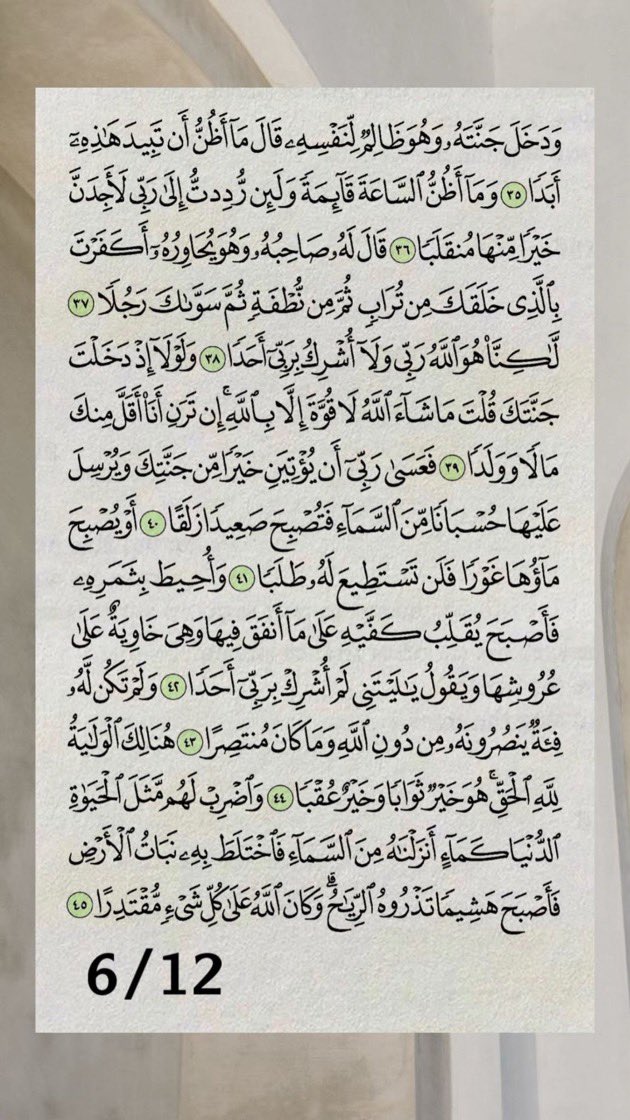 وَدَخَلَ جَنَّتَهُۥ وَهُوَ ظَالِمٌ لِّنَفْسِهِۦ قَالَ مَآ أَظُنُّ أَن تَبِيدَ هَٰذِهِۦٓ
أَبَدًا ٣٥ وَمَآ أَظُنُّ ٱلسَّاعَةَ قَآئِمَةً وَلَئِن رُّدِدتُّ إِلَىٰ رَبِّى لَأَجِدَنَّ
خَيْرًا مِّنْهَا مُنقَلَبًا ٣٦ قَالَ لَهُۥ صَاحِبُهُۥ وَهُوَ يُحَاوِرُهُۥٓ أَكَفَرْتَ
بِٱلَّذِى خَلَقَكَ مِن تُرَابٍ ثُمَّ مِن نُّطْفَةٍ ثُمَّ سَوَّىٰكَ رَجُلًا ٣٧
لَّٰكِنَّا۠ هُوَ ٱللَّهُ رَبِّى وَلَآ أُشْرِكُ بِرَبِّىٓ أَحَدًا ٣٨ وَلَوْلَآ إِذْ دَخَلْتَ
جَنَّتَكَ قُلْتَ مَا شَآءَ ٱللَّهُ لَا قُوَّةَ إِلَّا بِٱللَّهِ ۚ إِن تَرَنِ أَنَا۠ أَقَلَّ مِنكَ
مَالًا وَوَلَدًا ٣٩ فَعَسَىٰ رَبِّىٓ أَن يُؤْتِيَنِ خَيْرًا مِّن جَنَّتِكَ وَيُرْسِلَ
عَلَيْهَا حُسْبَانًا مِّنَ ٱلسَّمَآءِ فَتُصْبِحَ صَعِيدًا زَلَقًا ٤٠ أَوْ يُصْبِحَ
مَآؤُهَا غَوْرًا فَلَن تَسْتَطِيعَ لَهُۥ طَلَبًا ٤١ وَأُحِيطَ بِثَمَرِهِۦ
فَأَصْبَحَ يُقَلِّبُ كَفَّيْهِ عَلَىٰ مَآ أَنفَقَ فِيهَا وَهِىَ خَاوِيَةٌ عَلَىٰ
عُرُوشِهَا وَيَقُولُ يَٰلَيْتَنِى لَمْ أُشْرِكْ بِرَبِّىٓ أَحَدًا ٤٢ وَلَمْ تَكُن لَّهُۥ
فِئَةٌ يَنصُرُونَهُۥ مِن دُونِ ٱللَّهِ وَمَا كَانَ مُنتَصِرًا ٤٣ هُنَالِكَ ٱلْوَلَٰيَةُ
لِلَّهِ ٱلْحَقِّ ۚ هُوَ خَيْرٌ ثَوَابًا وَخَيْرٌ عُقْبًا ٤٤ وَٱضْرِبْ لَهُم مَّثَلَ ٱلْحَيَوٰةِ
ٱلدُّنْيَا كَمَآءٍ أَنزَلْنَٰهُ مِنَ ٱلسَّمَآءِ فَٱخْتَلَطَ بِهِۦ نَبَاتُ ٱلْأَرْضِ
فَأَصْبَحَ هَشِيمًا تَذْرُوهُ ٱلرِّيَٰحُ ۗ وَكَانَ ٱللَّهُ عَلَىٰ كُلِّ شَىْءٍ مُّقْتَدِرًا ٤٥
6/12